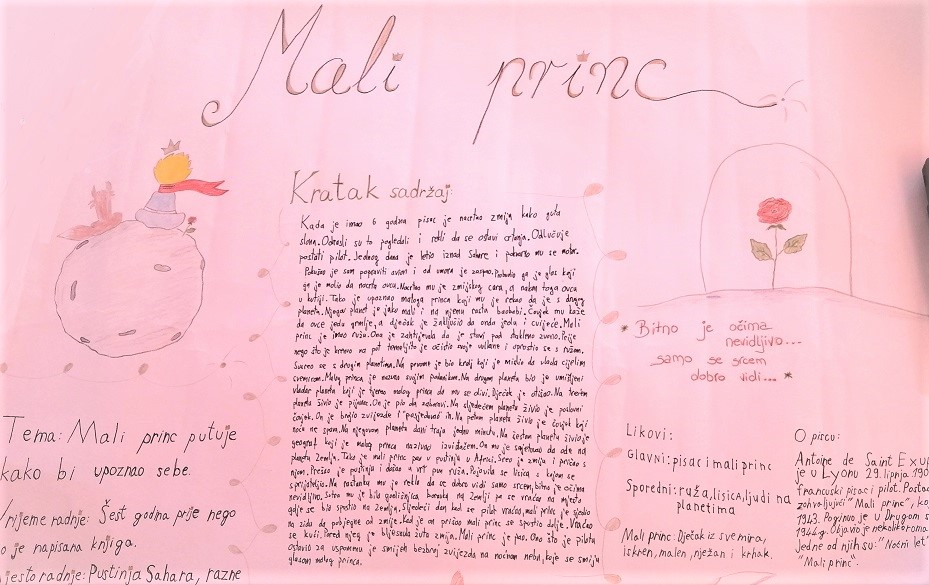 Mali princ
Kratak sadržaj:
Kada je imao 6 godina pisac je nacrtao zmiju kako guta
slona. Odrasli su to pogledali i rekli da se ostavi crtanja. Odlučuje
postati pilot. Jednog dana je letio iznad Sahare i pokvario mu se motor.
Pokušao je sam popraviti avion i od umora je zaspao. Probudio ga je glas koji
ga je molio da nacrta ovcu. Nacrtao mu je zmijskog cara, a nakon toga ovcu
u kutiji. Tako je upoznao maloga princa koji mu je rekao da je s drugog
planeta. Njegov planet je jako mali i na njemu rastu baobabi. Čovjek mu kaže
da ovce jedu grmlje, a dječak je zaključio da onda jedu i cvijeće. Mali
princ je imao ružu. Ona je zahtijevala da je stavi pod stakleno zvono. Prije
nego što je krenuo na put temeljito je očistio svoje vulkane i oprostio se s ružom.
Susreo se s drugim planetima. Na prvome je bio kralj koji je mislio da vlada cijelim
svemirom. Malog princa je nazvao svojim podanikom. Na drugom planetu bio je umišljeni
vladar planeta koji je tjerao malog princa da mu se divi. Dječak je otišao. Na trećem
planetu živio je pijanac. On je pio da zaboravi. Na sljedećem planetu živio je poslovni
čovjek. On je brojio zvijezde i "posjedovao" ih. Na petom planetu živio je čovjek koji
noću ne spava. Na njegovom planetu dani traju jednu minutu. Na šestom planetu živio je
geograf koji je malog princa nazivao izviđačem. On mu je savjetovao da ode na
planetu Zemlju. Tako je mali princ pao u pustinju u Africi. Sreo je zmiju i pričao s
njom. Prešao je pustinju i došao u vrt pun ruža. Pojavila se lisica s kojom se
sprijateljio. Na rastanku mu je rekla da se dobro vidi samo srcem, bitno je očima
nevidljivo. Sutra mu je bila godišnjica boravka na Zemlji pa se vraćao na mjesto
gdje se bio spustio na Zemlju. Sljedeći dan kad se pilot vraćao, mali princ je sjedio
na zidu da pobjegne od zmije. Kad je on pričao mali princ se spustio dolje. Vraćao
se kući. Pored njeg je bljesnula žuta zmija. Mali princ je pao. Ono što je pilotu
ostavio za uspomenu je smijeh bezbroj zvijezda na noćnom nebu, koje se smiju
glasom malog princa.
* Bitno je očima
nevidljivo...
samo se srcem
dobro vidi... *
Tema: Mali princ putuje
kako bi upoznao sebe.
Vrijeme radnje: Šest godina prije nego
što je napisana knjiga.
Mjesto radnje: Pustinja Sahara, razne
Likovi:
Glavni: pisac i mali princ
Sporedni: ruža, lisica, ljudi na
planetima
Mali princ: Dječak iz svemira,
iskren, malen, nježan i krhak.
O piscu:
Antoine de Saint Exup
je u Lyonu 29. lipnja 190
francuski pisac i pilot. Postao
zahvaljujući "Mali princ", ko
1943. Poginuo je u Drugom s
1944.g. Objavio je nekoliko roma
Jedne od njih su: "Noćni let"
"Mali princ".